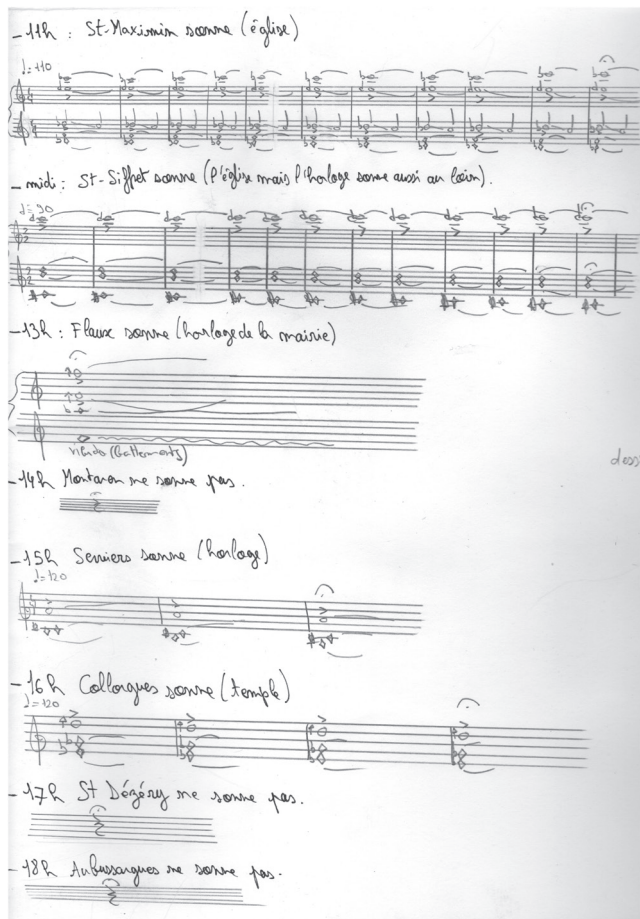 - 11h : St-Maximin sonne (église)
♩=110
- midi : St-Siffret sonne (l'église mais l'horloge sonne aussi au loin).
♩=90
- 13h : Flaux sonne (horloge de la mairie)
(battements)
- 14h Montaren ne sonne pas.
- 15h Serviers sonne (horloge)
♩=120
- 16h Collorgues sonne (temple)
♩=120
- 17h St Dézéry ne sonne pas.
- 18h Aubussargues ne sonne pas.